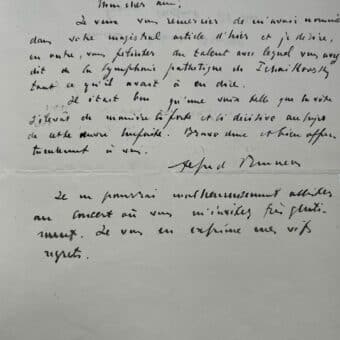 Mon cher ami.
Je veux vous remercier de m'avoir nommé
dans votre magistral article d'hier et je désire,
en outre, vous féliciter du talent avec lequel vous avez
dit de la Symphonie pathétique de Tchaïkovsky
tout ce qu'il y avait à en dire.
Il était bon qu'une voix telle que la vôtre
s'élevât de manière si forte et si décisive au sujet
de cette œuvre . Bravo donc et bien affec-
tueusement à vous.
Alfred Bruneau
Je ne pourrai malheureusement assister
au concert où vous m'invitez très genti-
ment. Je vous en exprime mes vifs
regrets.